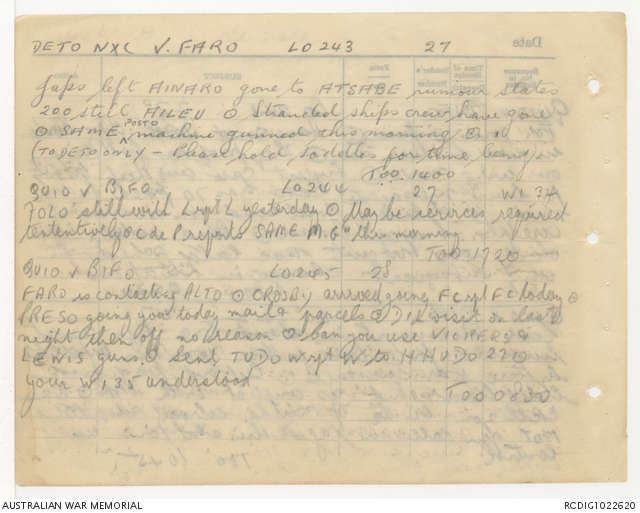 DETO NXC V. FARO LO243 27
Date
Japs left AINARO gone to ATSABE rumour states
200 still AILEU ⊙ Stranded ships crew have gone
⊙ SAME POSTO machine gunned this morning ⊙
(TO DETO ONLY - Please hold for time being).
TOO. 1400
QUIO V BIFO LO244 27 W1 34
FOLO still with L rpt L yesterday ⊙ May be services required
tentatively ⊙ Code P reports SAME M.G. this morning
TOO 1720
QUIO V BIFO LO245 28
FARO is contacting ALTO ⊙ CROSBY arrived going F C rpt F C today ⊙
PRESO going you today mail & parcels ⊙ DIL visit on last
night then off no reason ⊙ Can you use VICKERS &
LEWIS guns. ⊙ Sent TUDO W rpt W to HHUDO 27 ⊙
your W1 35 understood
TOO 0830
AUSTRALIAN WAR MEMORIAL
RCDIG1022620